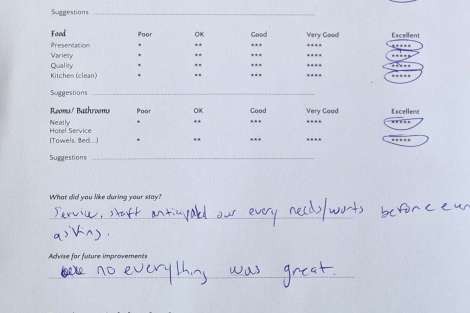 Suggestions
Food Poor OK Good Very Good Excellent
Presentation * ** *** **** *****
Variety * ** *** **** *****
Quality * ** *** **** *****
Kitchen (clean) * ** *** **** *****
Suggestions
Rooms/ Bathrooms Poor OK Good Very Good Excellent
Neatly * ** *** **** *****
Hotel Service
(Towels, Bed...) * ** *** **** *****
Suggestions
What did you like during your stay?
Service, staff anticipated our every needs/wants before even
asking.
Advise for future improvements
no everything was great.